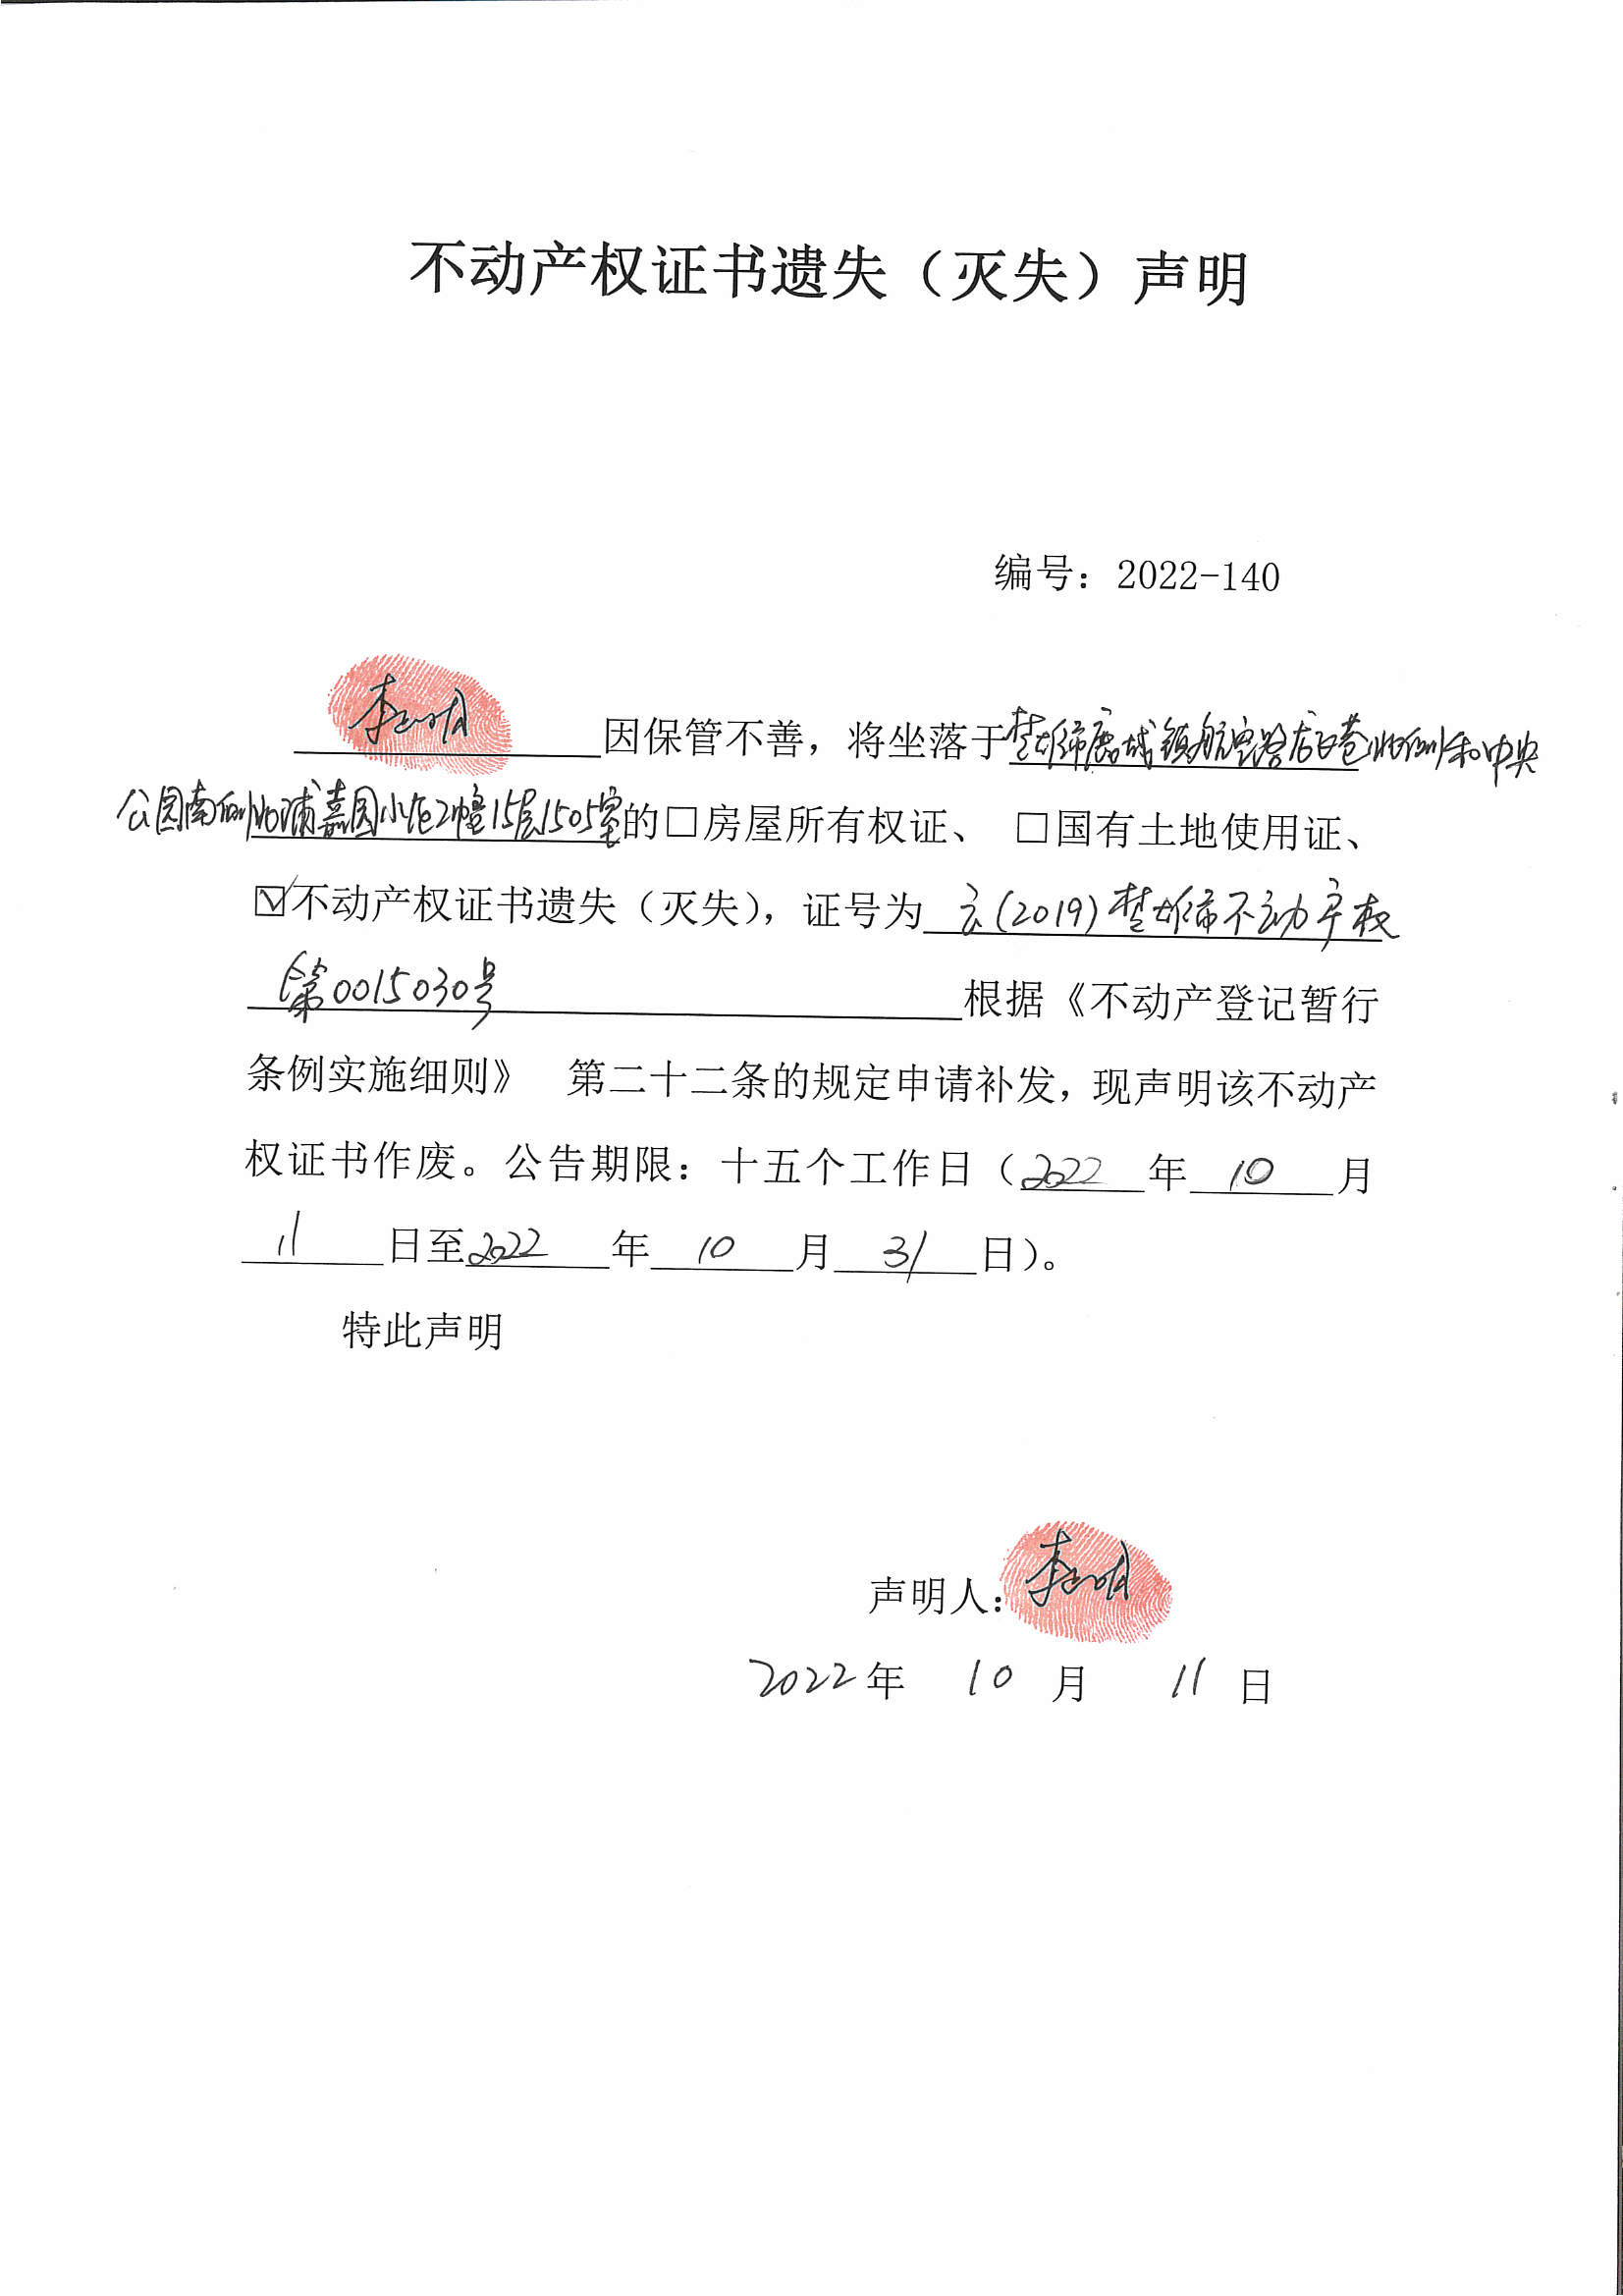 不动产权证书遗失（灭失）声明
编号：2022-140
李 明 因保管不善，将坐落于楚雄市鹿城镇航空路 北侧和中央
公园南侧 嘉园小区2幢15层1505室的□房屋所有权证、 □国有土地使用证、
☑不动产权证书遗失（灭失），证号为 云（2019）楚雄市不动产权
第0015030号 根据《不动产登记暂行
条例实施细则》 第二十二条的规定申请补发，现声明该不动产
权证书作废。公告期限：十五个工作日（2022 年 10 月
11 日至 2022 年 10 月 31 日）。
特此声明
声明人：李 明
2022年 10 月 11 日